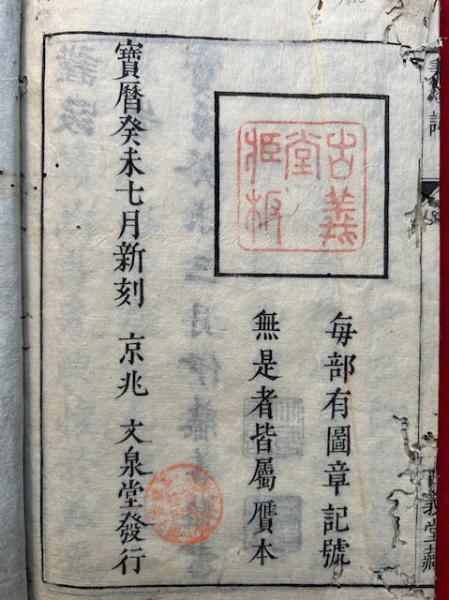 義堂藏
古義
堂
板
毎部有圖章記號
無是者皆屬贋本
寶曆癸未七月新刻 京兆 文泉堂發行